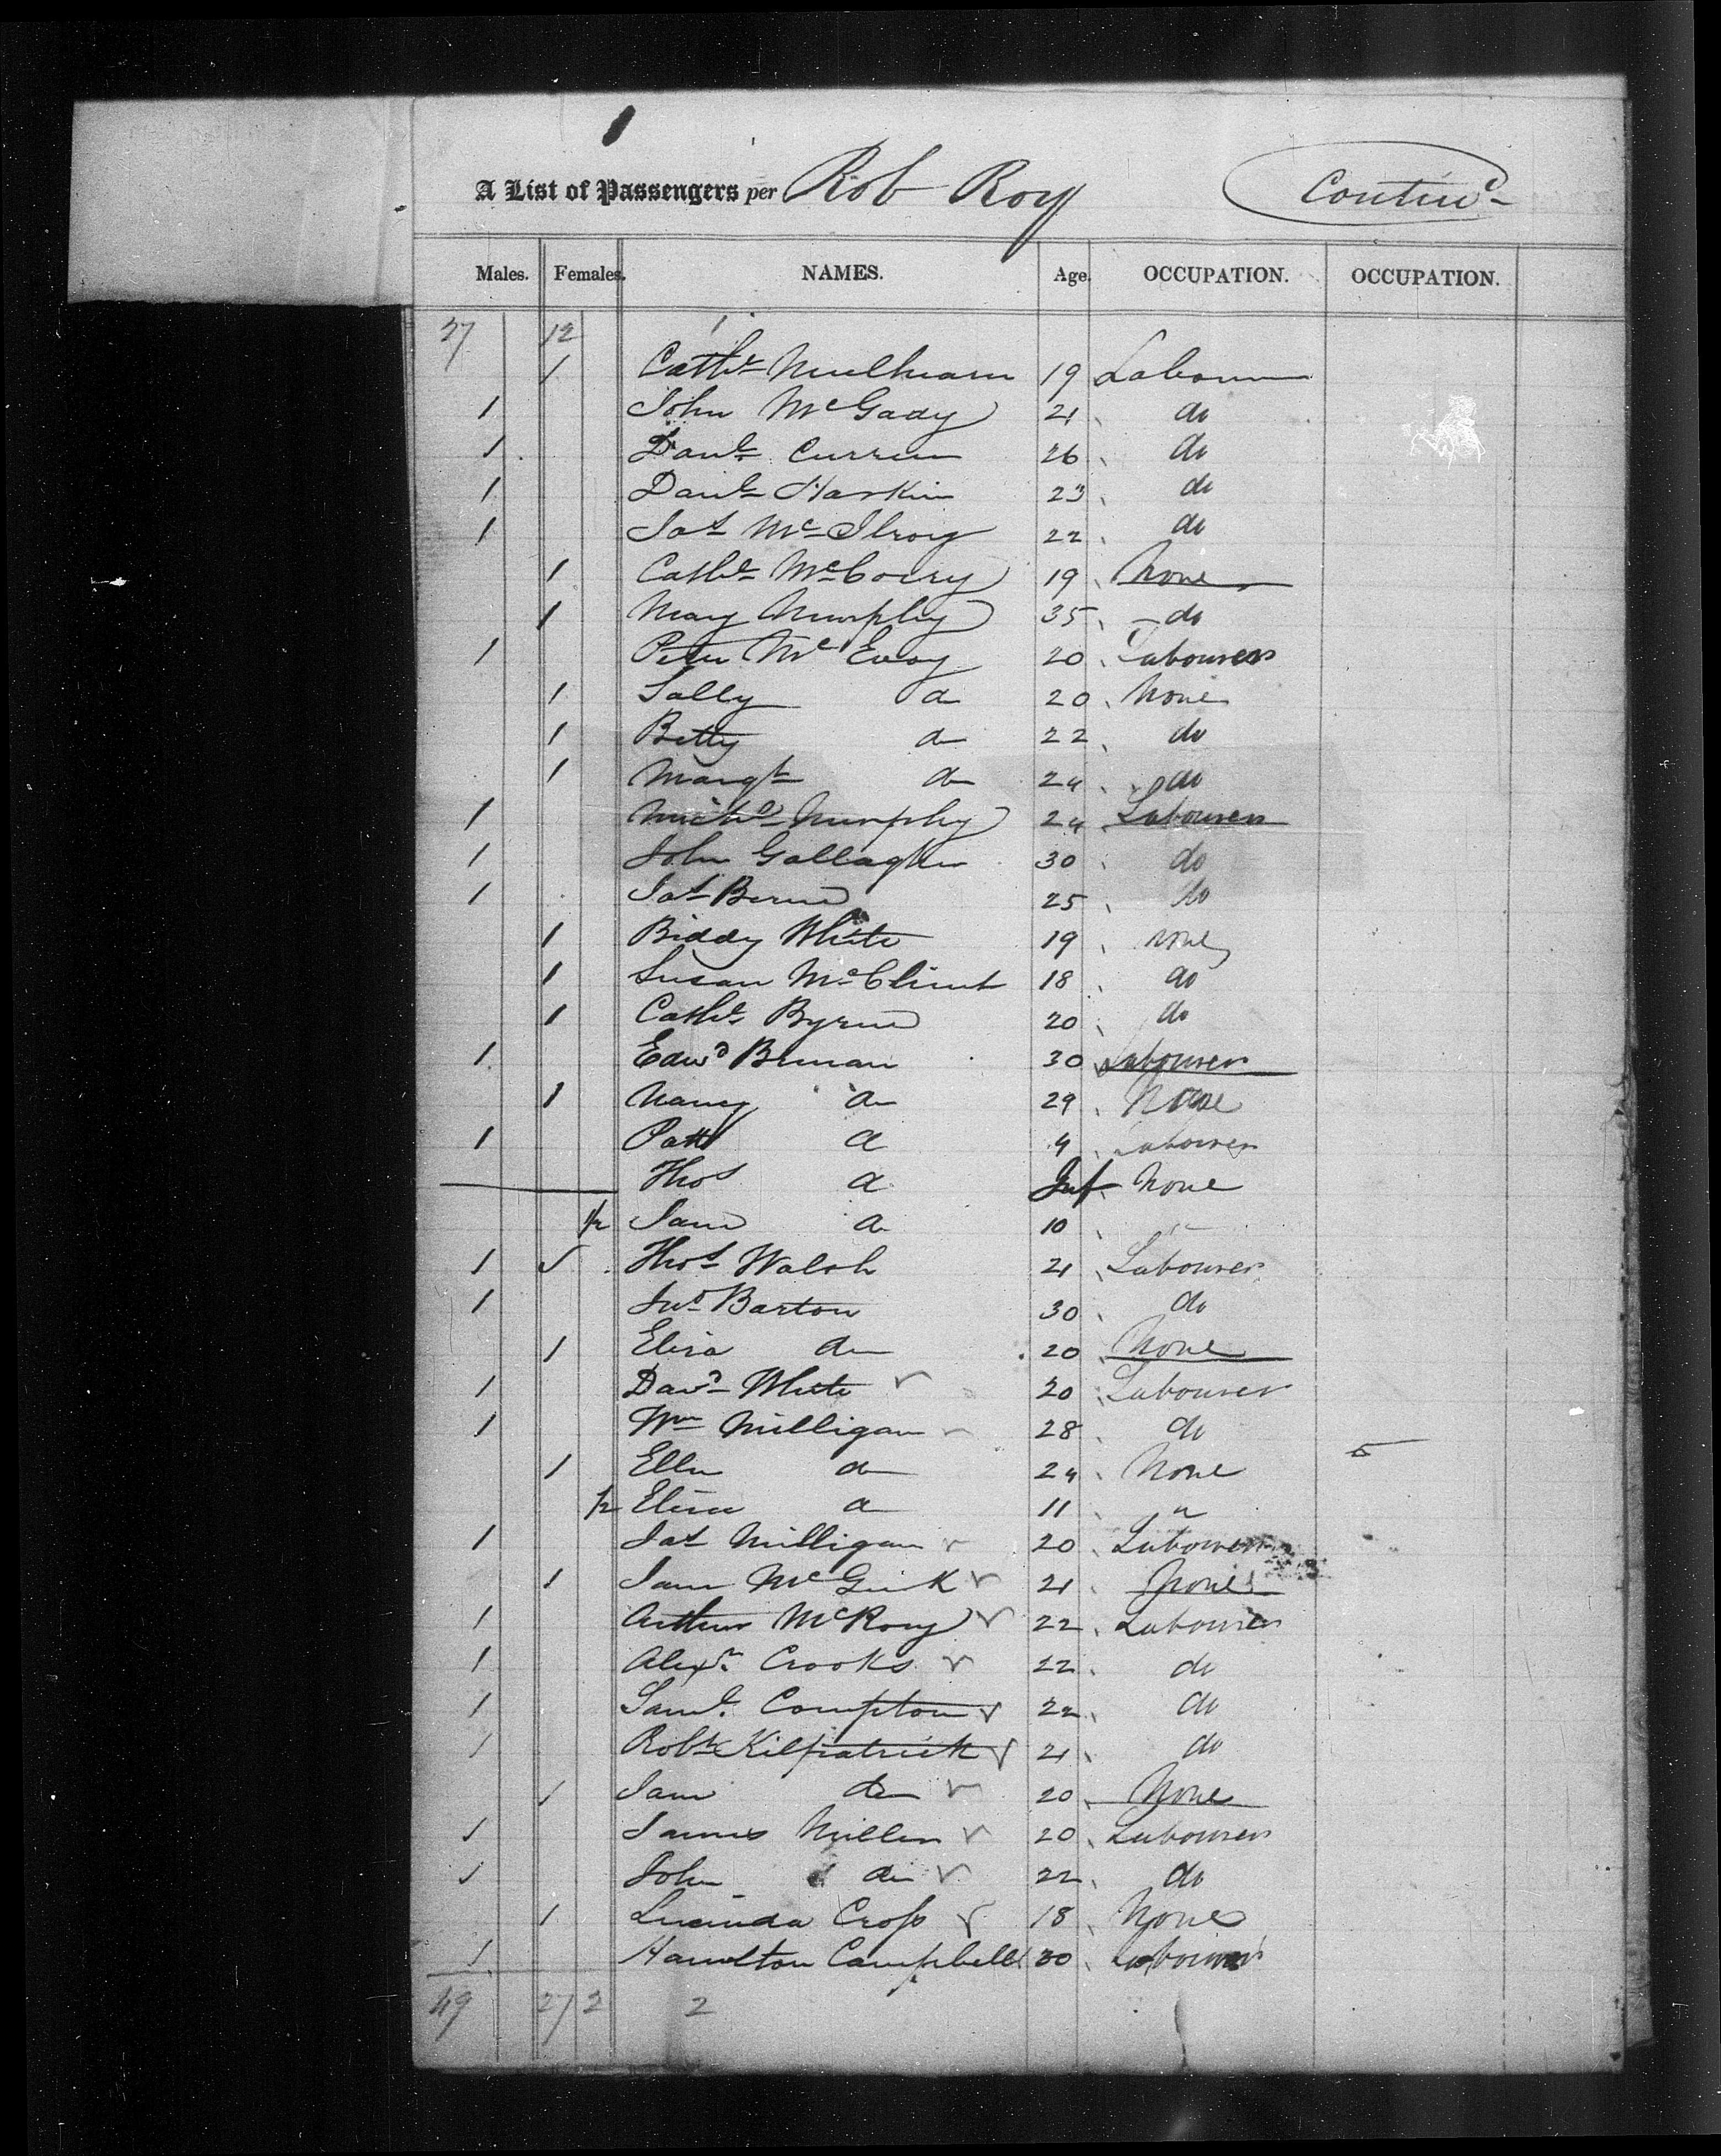 A List of Passengers per Rob Roy Contind
Males. Females. NAMES. Age. OCCUPATION. OCCUPATION.
37 12
1 Cathe Mulhearn 19 Labourer
1 John McGady 21 do
1 Danl Curren 26 do
1 Danl Harkin 23 do
1 Jas McIlroy 22 do
1 Cathe 19 None
1 Mary Murphy 35 do
1 Peter McEvoy 20 Labourer
1 Sally do 20 None
1 Betty do 22 do
1 Margt do 24 do
1 Michl Murphy 24 Labourer
1 John Gallagher 30 do
1 Jas 25 do
1 Biddy White 19 none
1 Susan McClint 18 do
1 Cathe Byrne 20 do
1 Edwd 30 Labourer
1 Nancy do 29 None
1 Patt do 4 Labourer
Thos do Inf None
1/2 Jane do 10 "
1 Thos Walsh 21 Labourer
1 Jno Barton 30 do
1 Eliza do 20 None
1 Davd White 20 Labourer
1 Wm Milligan 28 do
1 Ellen do 24 None
1/2 Eliza do 11 "
1 Jas Milligan 20 Labourer
1 Jane 21 None
1 Arthur McRory 22 Labourer
1 Alexr Crooks 22 do
1 Saml Compton 22 do
1 Robt Kilpatrick 21 do
1 Jane do 20 None
1 James Miller 20 Labourer
1 John do 22 do
1 Lucinda Cross 18 None
1 Hamilton Campbell 30 Labourer
49 27 2 2